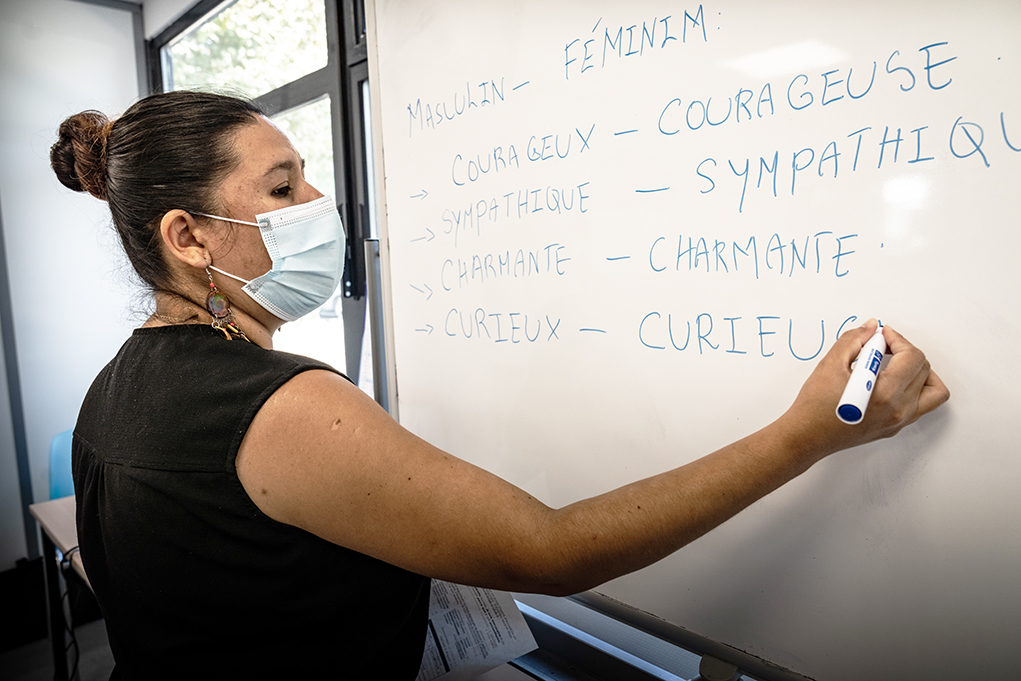 FÉMINIM:
MASCULIN –
→ COURAGEUX – COURAGEUSE .
→ SYMPATHIQUE – SYMPATHIQU
→ CHARMANTE – CHARMANTE .
→ CURIEUX – CURIEUS